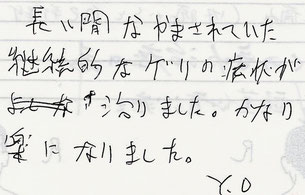 長い間なやまされていた
継続的なゲリの症状が
治りました。かなり
楽になりました。
Y.O